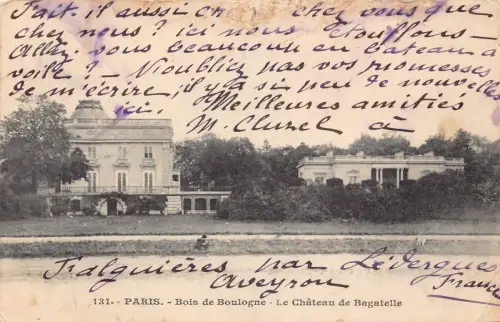 Fait-il aussi chaud chez vous que
chez nous? ici nous étouffons —
Allez-vous beaucoup en bateau à
voile? — N'oubliez pas vos promesses
de m'écrire, il y a si peu de nouvelles
ici.
Meilleures amitiés
M. Cluzel
à
Falguières par Le Vergues
Aveyron France
131. - PARIS. - Bois de Boulogne - Le Château de Bagatelle